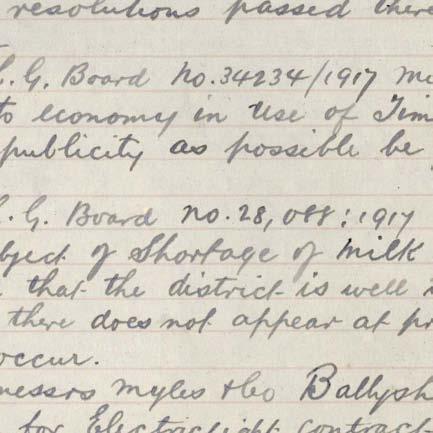 resolutions passed there
L. G. Board No. 34234/1917
to economy in use of Tim
publicity as possible be
L. G. Board no. 28,088:1917
bject of Shortage of Milk
that the district is well
there does not appear at pr
occur.
messrs Myles & Co Ballysh
for Electric light contract